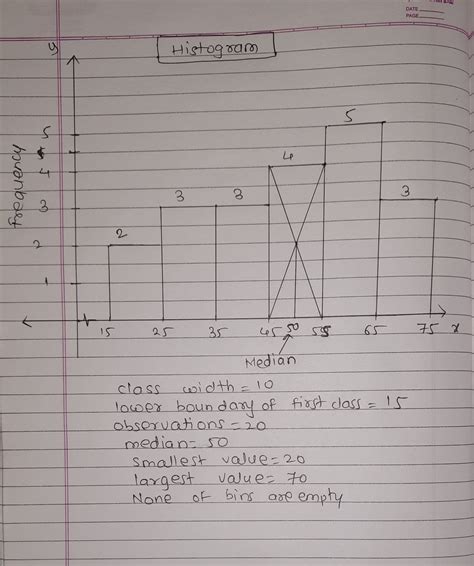 DATE
PAGE
Histogram
y
frequency
5
4
3
2
1
2
3
3
4
5
3
15 25 35 45 50 55 65 75 x
Median
class width = 10
lower boundary of first class = 15
observations = 20
median = 50
smallest value = 20
largest value = 70
None of bins are empty